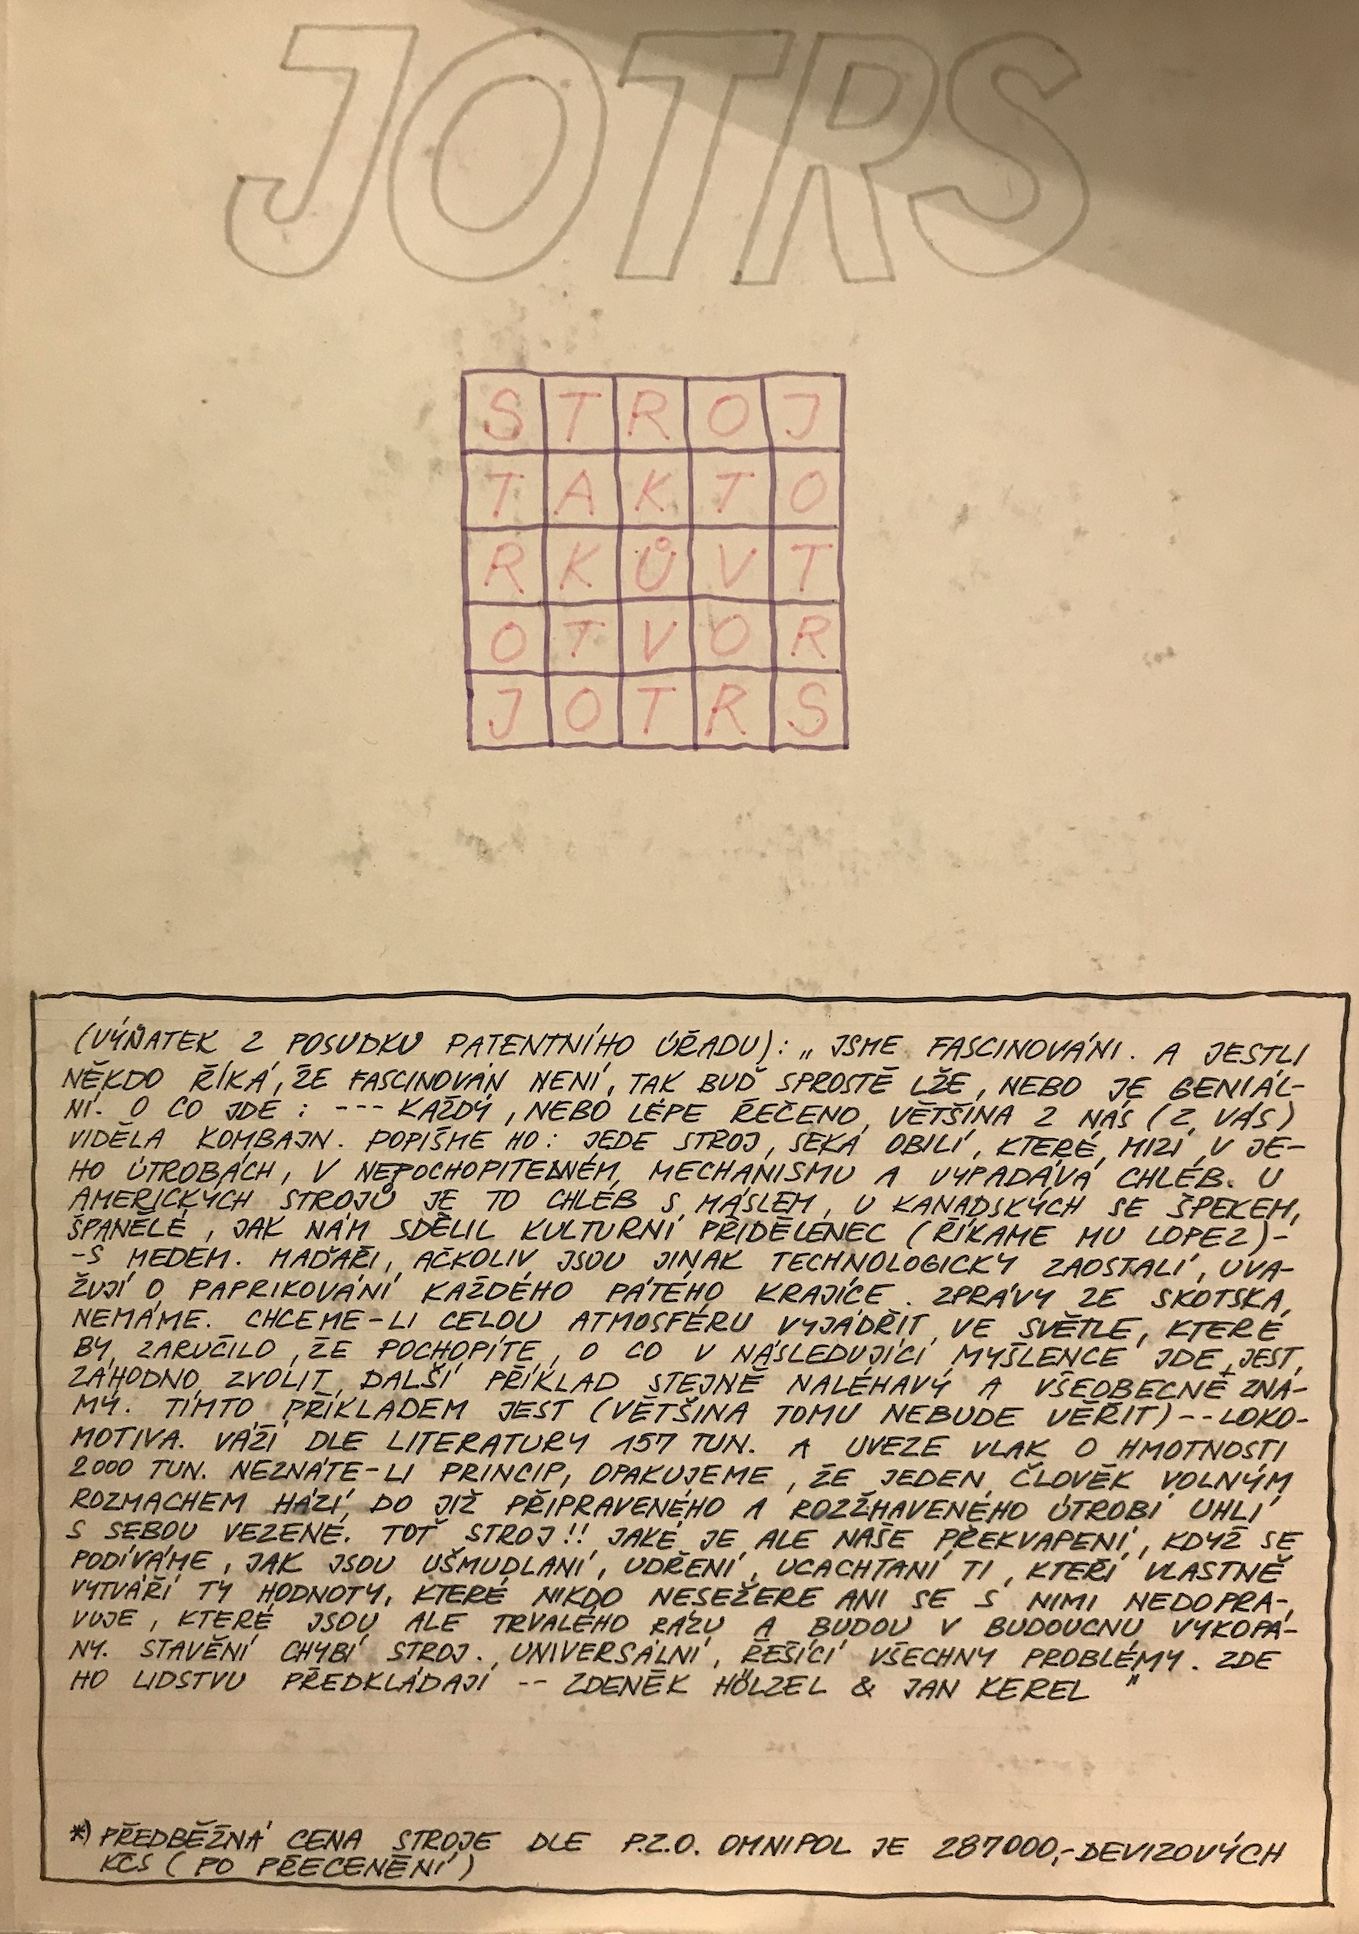 JOTRS
S T R O J
T A K T O
R K Ů V T
O T V O R
J O T R S
(VÝŇATEK Z POSUDKU PATENTNÍHO ÚŘADU): „ JSME FASCINOVÁNI. A JESTLI
NĚKDO ŘÍKÁ, ŽE FASCINOVÁN NENÍ, TAK BUĎ SPROSTĚ LŽE, NEBO JE GENIÁL-
NÍ. O CO JDE : --- KAŽDÝ, NEBO LÉPE ŘEČENO, VĚTŠINA Z NÁS (Z VÁS)
VIDĚLA KOMBAJN. POPIŠME HO: JEDE STROJ, SEKÁ OBILÍ, KTERÉ MIZÍ V JE-
HO ÚTROBÁCH, V NEPOCHOPITELNÉM MECHANISMU A VYPADÁVÁ CHLÉB. U
AMERICKÝCH STROJŮ JE TO CHLÉB S MÁSLEM, U KANADSKÝCH SE ŠPEKEM,
ŠPANĚLÉ, JAK NÁM SDĚLIL KULTURNÍ PŘIDĚLENEC (ŘÍKÁME MU LOPEZ)-
-S MEDEM. MAĎAŘI, AČKOLIV JSOU JINAK TECHNOLOGICKY ZAOSTALÍ, UVA-
ŽUJÍ O PAPRIKOVÁNÍ KAŽDÉHO PÁTÉHO KRAJÍCE. ZPRÁVY ZE SKOTSKA
NEMÁME. CHCEME-LI CELOU ATMOSFÉRU VYJÁDŘIT VE SVĚTLE, KTERÉ
BY ZARUČILO, ŽE POCHOPÍTE, O CO V NÁSLEDUJÍCÍ MYŠLENCE JDE, JEST
ZÁHODNO ZVOLIT DALŠÍ PŘÍKLAD STEJNĚ NALÉHAVÝ A VŠEOBECNĚ ZNÁ-
MÝ. TÍMTO PŘÍKLADEM JEST (VĚTŠINA TOMU NEBUDE VĚŘIT) -- LOKO-
MOTIVA. VÁŽÍ DLE LITERATURY 157 TUN. A UVEZE VLAK O HMOTNOSTI
2000 TUN. NEZNÁTE-LI PRINCIP, OPAKUJEME, ŽE JEDEN ČLOVĚK VOLNÝM
ROZMACHEM HÁZÍ DO JIŽ PŘIPRAVENÉHO A ROZŽHAVENÉHO ÚTROBÍ UHLÍ
S SEBOU VEZENÉ. TOŤ STROJ!! JAKÉ JE ALE NAŠE PŘEKVAPENÍ, KDYŽ SE
PODÍVÁME, JAK JSOU UŠMUDLANÍ, UDŘENÍ, UCACHTANÍ TI, KTEŘÍ VLASTNĚ
VYTVÁŘÍ TY HODNOTY, KTERÉ NIKDO NESEŽERE ANI SE S NIMI NEDOPRA-
VUJE, KTERÉ JSOU ALE TRVALÉHO RÁZU A BUDOU V BUDOUCNU VYKOPÁ-
NY. STAVĚNÍ CHYBÍ STROJ. UNIVERSÁLNÍ, ŘEŠÍCÍ VŠECHNY PROBLÉMY. ZDE
HO LIDSTVU PŘEDKLÁDAJÍ -- ZDENĚK HÖLZEL & JAN KEREL "
*) PŘEDBĚŽNÁ CENA STROJE DLE P.Z.O. OMNIPOL JE 287000,- DEVIZOVÝCH
KČS (PO PŘECENĚNÍ)